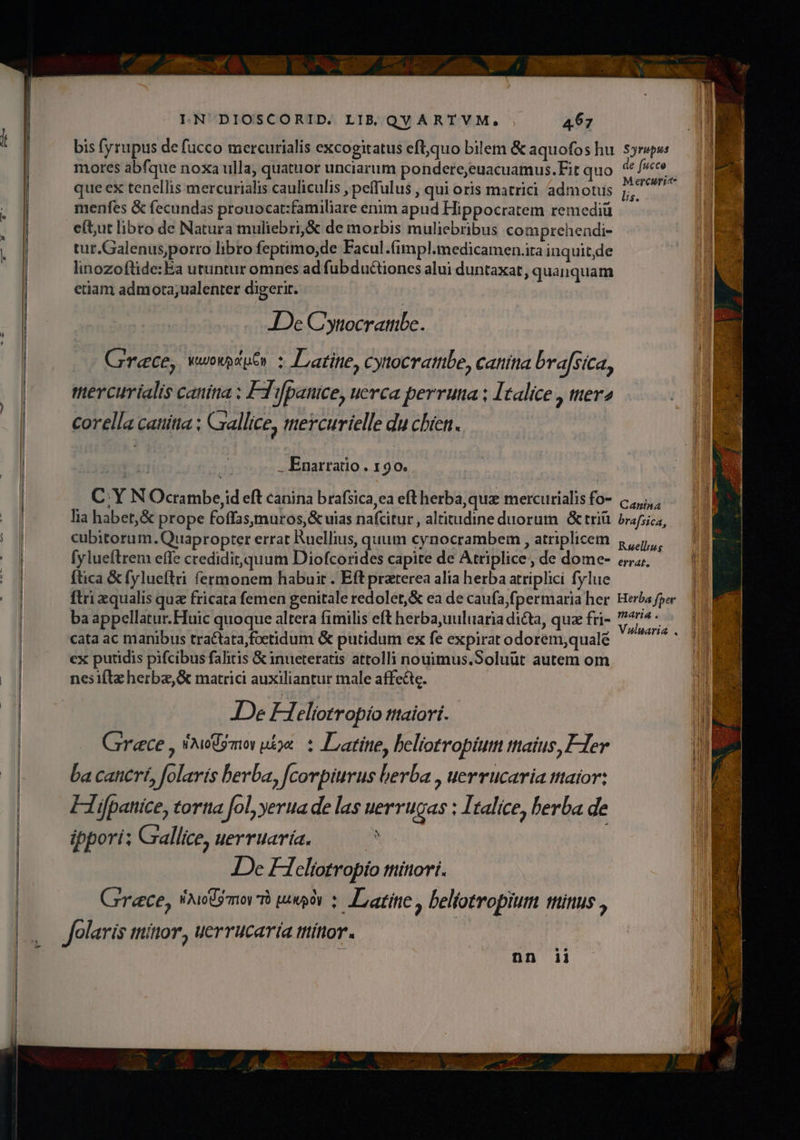 IN DIOSCORID. LIB. QVARTVM. 467
bis ſyrupus de ſucco mercurialis excogitatus eſt,quo bilem & aquoſos hu
mores abſque noxa ulla, quatuor unciarum pondere,euacuamus.Fit quo
que ex tenellis mercurialis cauliculis, peſſulus, qui oris matrici admotus
menſes & ſecundas prouocat:familiare enim apud Hippocratem remediũ
eſt,ut libro de Natura muliebri,& de morbis muliebribus comprehendi-
tur.Galenus,porro libro ſeptimo,de Facul.ſimpl.medicamen.ita inquit,de
linozoſtide:Ea utuntur omnes ad ſubductiones alui duntaxat, quanquam
etiam admota,ualenter digerit.
Syrupus
de ſucco
Mercuria-
lis.
De Cynocrambe.
Græce, κυνοκράμβη : Latine, cynocrambe, canina braſsica,
mercurialis canina : Hiſpanice, uerca perruna : Italice, mer⸗
corella canina : Gallice, mercurielle du chien.
Enarratio. 190.
CYNOcrambe,id eſt canina braſsica,ea eſt herba,quæ mercurialis fo-
lia habet,& prope foſſas,muros,& uias naſcitur, altitudine duorum & triũ
cubitorum.Quapropter errat Ruellius, quum cynocrambem, atriplicem
ſylueſtrem eſſe credidit,quum Dioſcorides capite de Atriplice, de dome-
ſtica & ſylueſtri ſermonem habuit. Eſt præterea alia herba atriplici ſylue
ſtri æqualis quæ fricata ſemen genitale redolet,& ea de cauſa,ſpermaria her
ba appellatur.Huic quoque altera ſimilis eſt herba,uuluaria dicta, quæ fri-
cata ac manibus tractata,fœtidum & putidum ex ſe expirat odorem,qualẽ
ex putidis piſcibus ſalitis & inueteratis attolli nouimus.Soluũt autem om
nes iſtæ herbæ,& matrici auxiliantur male affectę.
Canina
braſsica,
Ruellius
errat.
Herba ſper
maria.
Vuluaria.
De Heliotropio maiori.
Græce, ἡλιοτρόπιον μέγα : Latine, heliotropium maius, Her
ba cancri, ſolaris herba, ſcorpiurus herba, uerrucaria maior:
Hiſpanice, torna ſol, yerua de las uerrugas : Italice, herba de
ippori; Gallice, uerruaria.
De Heliotropio minori.
Græce, ἡλιοτρόπιον τὸ μικρὸν : Latine, heliotropium minus,
ſolaris minor, uerrucaria minor.
nn ii